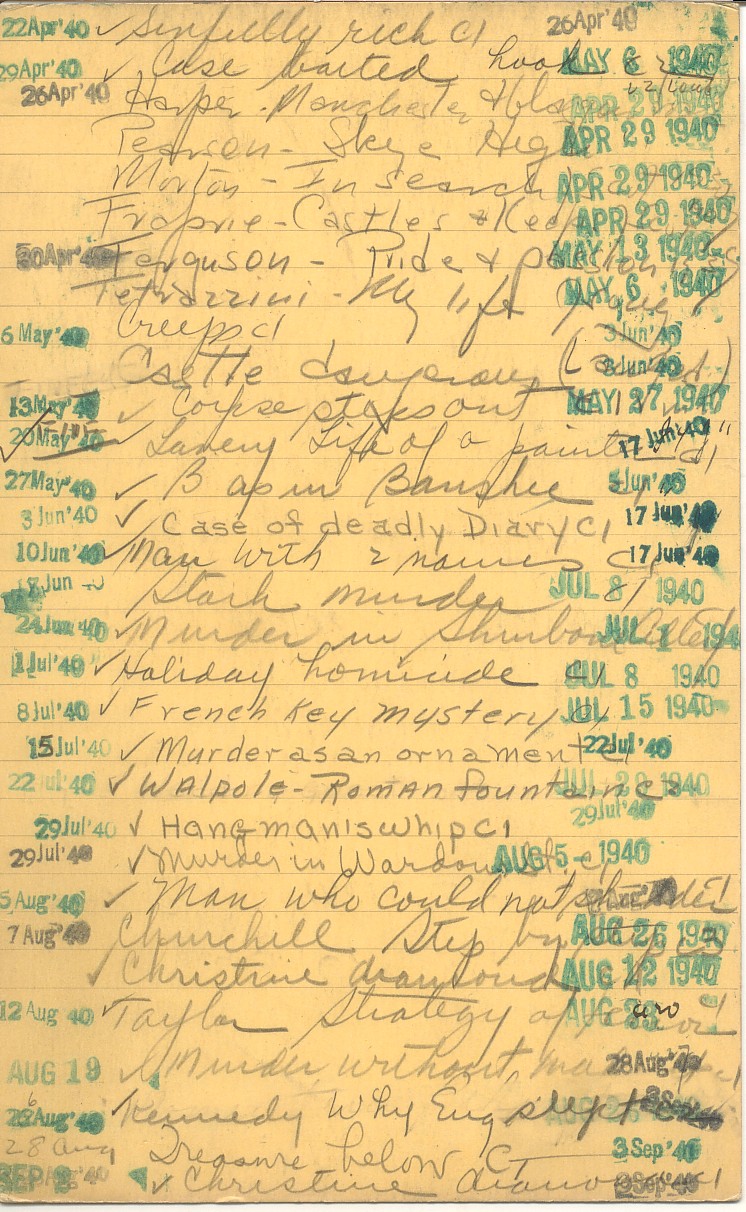 22 Apr '40 ✓ Sinfully rich c1 26 Apr '40
29 Apr '40 ✓ Case baited hook c2 MAY 6 1940
26 Apr '40 Harper - Manchester APR 29 1940
Pearson - Skye High APR 29 1940
Morton - In search APR 29 1940
Castles & Keeps APR 29 1940
30 Apr '40 Ferguson - Pride & passion MAY 13 1940
Tetrazzini - My life MAY 6 1940
6 May '40 Creeps c1 3 Jun '40
Castle dangerous 3 Jun '40
13 May '40 ✓ Corpse steps out c1 MAY 27 1940
20 May '40 Lavery Life of a painter c1 17 Jun '40
27 May '40 ✓ B as in Banshee c1 3 Jun '40
3 Jun '40 ✓ Case of deadly Diary c1 17 Jun '40
10 Jun '40 ✓ Man with 2 names c1 17 Jun '40
Jun Stark murder c1 JUL 8 1940
24 Jun '40 ✓ Murder in JUL 1 194
1 Jul '40 ✓ Holiday homicide c1 JUL 8 1940
8 Jul '40 ✓ French Key mystery c1 JUL 15 1940
15 Jul '40 ✓ Murder as an ornament c1 22 Jul '40
22 Jul '40 ✓ Walpole - Roman fountain c2 JUL 29 1940
29 Jul '40
29 Jul '40 ✓ Hangman's whip c1
29 Jul '40 ✓ Murder in Wardour St. c1 AUG 5 - 1940
5 Aug '40 ✓ Man who could not shudder c1
7 Aug '40 Churchill Step by step AUG 26 1940
✓ Christine diamond AUG 12 1940
12 Aug '40 ✓ Taylor Strategy of terror AUG 20
AUG 19 ✓ Murder without 28 Aug '40
Aug '40 ✓ Kennedy Why Eng slept 3 Sep '40
28 Aug Treasure below c1 3 Sep '40
SEP 2 ✓ Christine diamond c1 Sep '40